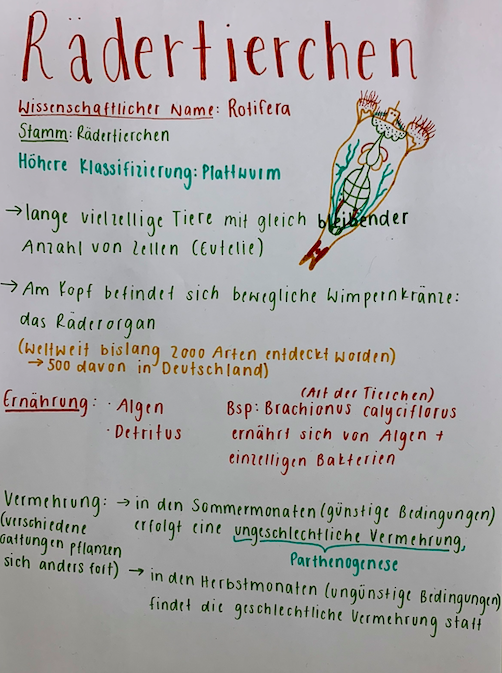 Rädertierchen
Wissenschaftlicher Name: Rotifera
Stamm: Rädertierchen
Höhere Klassifizierung: Plattwurm
→ lange vielzellige Tiere mit gleich bleibender
Anzahl von Zellen (Eutelie)
→ Am Kopf befindet sich bewegliche Wimpernkränze:
das Räderorgan
(weltweit bislang 2000 Arten entdeckt worden)
→ 500 davon in Deutschland)
Ernährung: · Algen
· Detritus
(Art der Tierchen)
Bsp: Brachionus calyciflorus
ernährt sich von Algen +
einzelligen Bakterien
Vermehrung:
(verschiedene
Gattungen pflanzen
sich anders fort)
→ in den Sommermonaten (günstige Bedingungen)
erfolgt eine ungeschlechtliche Vermehrung,
Parthenogenese
→ in den Herbstmonaten (ungünstige Bedingungen)
findet die geschlechtliche Vermehrung statt